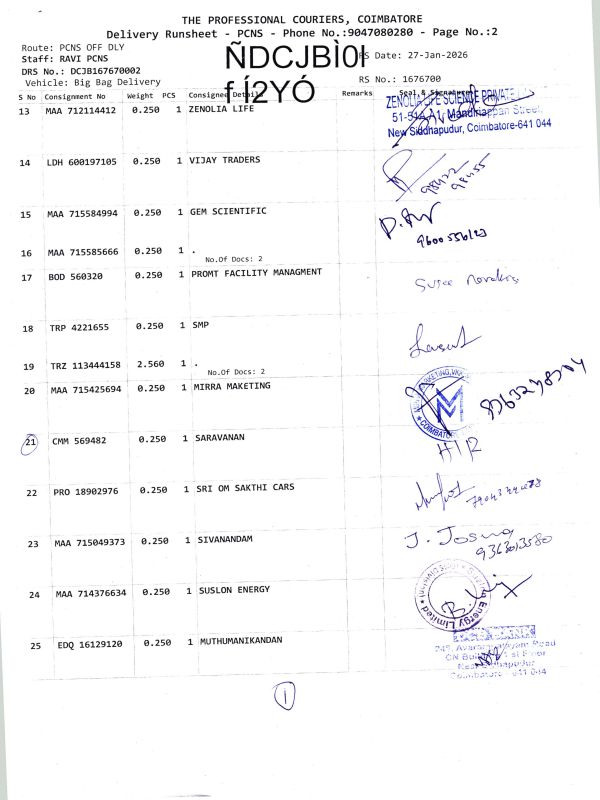 THE PROFESSIONAL COURIERS, COIMBATORE
Delivery Runsheet - PCNS - Phone No.:9047080280 - Page No.:2
Route: PCNS OFF DLY
ÑDCJBÌ0I
RS Date: 27-Jan-2026
Staff: RAVI PCNS
DRS No.: DCJB167670002
f Í2YÓ
RS No.: 1676700
Vehicle: Big Bag Delivery
S No Consignment No Weight PCS Consignee Details Remarks Seal & Signature
13 MAA 712114412 0.250 1 ZENOLIA LIFE
ZENOLIA LIFE SCIENCE PRIVATE
New Siddhapudur, Coimbatore-641 044
14 LDH 600197105 0.250 1 VIJAY TRADERS
98422
98455
15 MAA 715584994 0.250 1 GEM SCIENTIFIC
16 MAA 715585666 0.250 1 .
No.Of Docs: 2
17 BOD 560320 0.250 1 PROMT FACILITY MANAGMENT
18 TRP 4221655 0.250 1 SMP
19 TRZ 113444158 2.560 1 .
No.Of Docs: 2
20 MAA 715425694 0.250 1 MIRRA MAKETING
21 CMM 569482 0.250 1 SARAVANAN
H/R
22 PRO 18902976 0.250 1 SRI OM SAKTHI CARS
23 MAA 715049373 0.250 1 SIVANANDAM
J. Josna
9363013580
24 MAA 714376634 0.250 1 SUSLON ENERGY
Energy Limited
25 EDQ 16129120 0.250 1 MUTHUMANIKANDAN
Coimbatore - 641 044
1